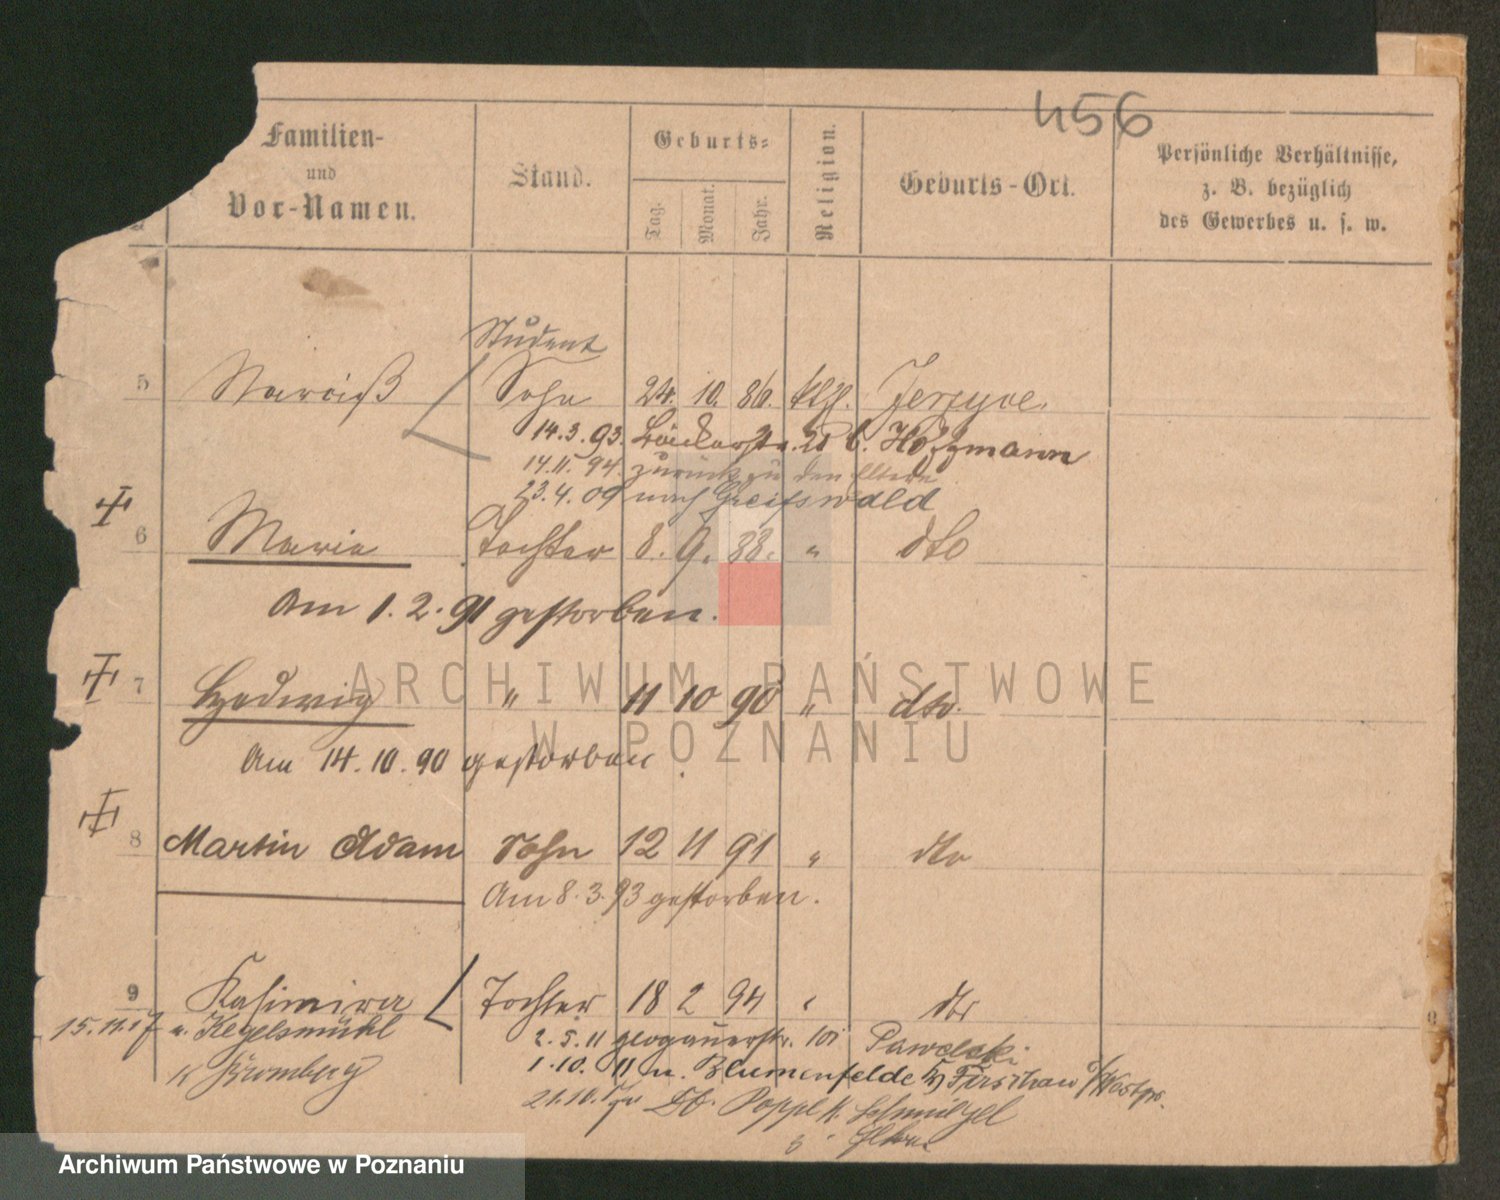 456
Familien-
und
Vor-Namen.
Stand.
Geburts-
Tag.
Monat.
Jahr.
Religion.
Geburts-Ort.
Persönliche Verhältnisse,
z. B. bezüglich
des Gewerbes u. s. w.
Student
5 Narciß Sohn 24. 10. 86. kth.
14.3.93. Bäckerstr.
14.11.94. zurück zu den Eltern
23.4.09 nach Greifswald
6 Marie Tochter 8. 9. 88. " dto
Am 1.2.91 gestorben.
7 Hedwig " 11 10 90 " dto.
Am 14.10.90 gestorben.
8 Martin Adam Sohn 12 11 91 " dto
Am 8.3.93 gestorben.
9 Kasimira Tochter 18 2 94 " dto
15.11.17 n. Kegelsmühl
Bromberg
2.5.11 Glogauerstr. 101 Pawelski
1.10.11 n. Blumenfelde Dirschau Westpr.
Eltern
ARCHIWUM PAŃSTWOWE
W POZNANIU
Archiwum Państwowe w Poznaniu